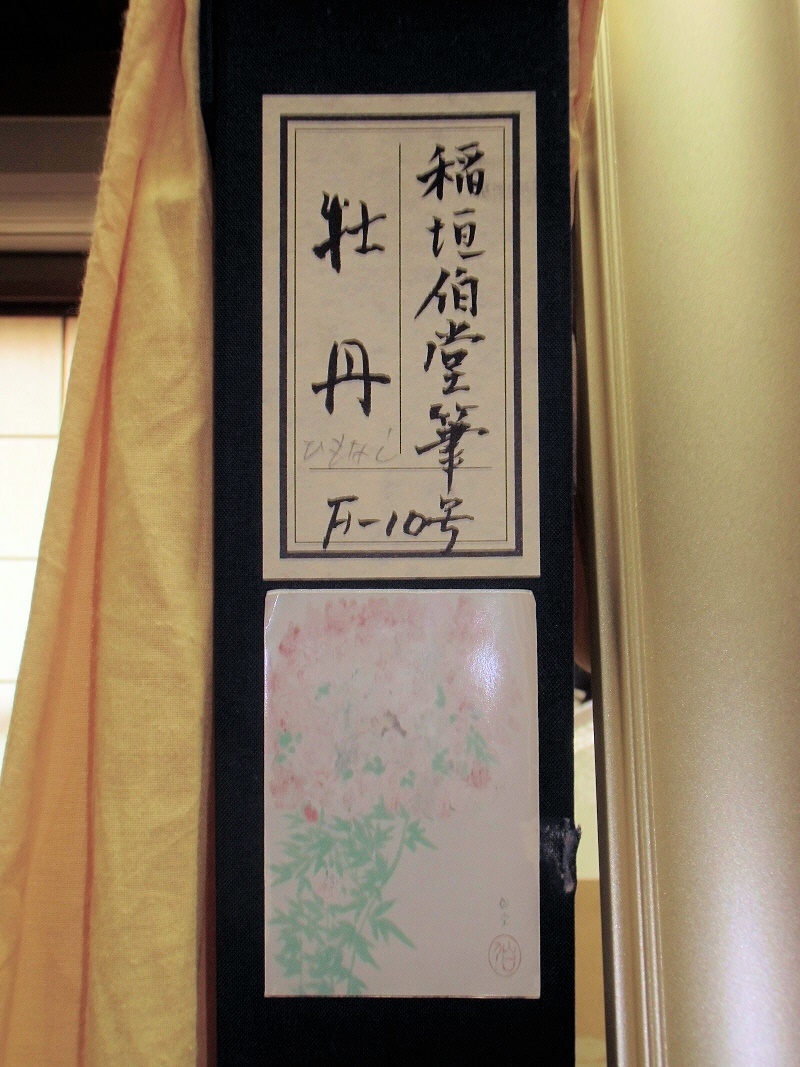 稲垣伯堂筆
牡丹
ひもなし
F-10号
伯堂
伯